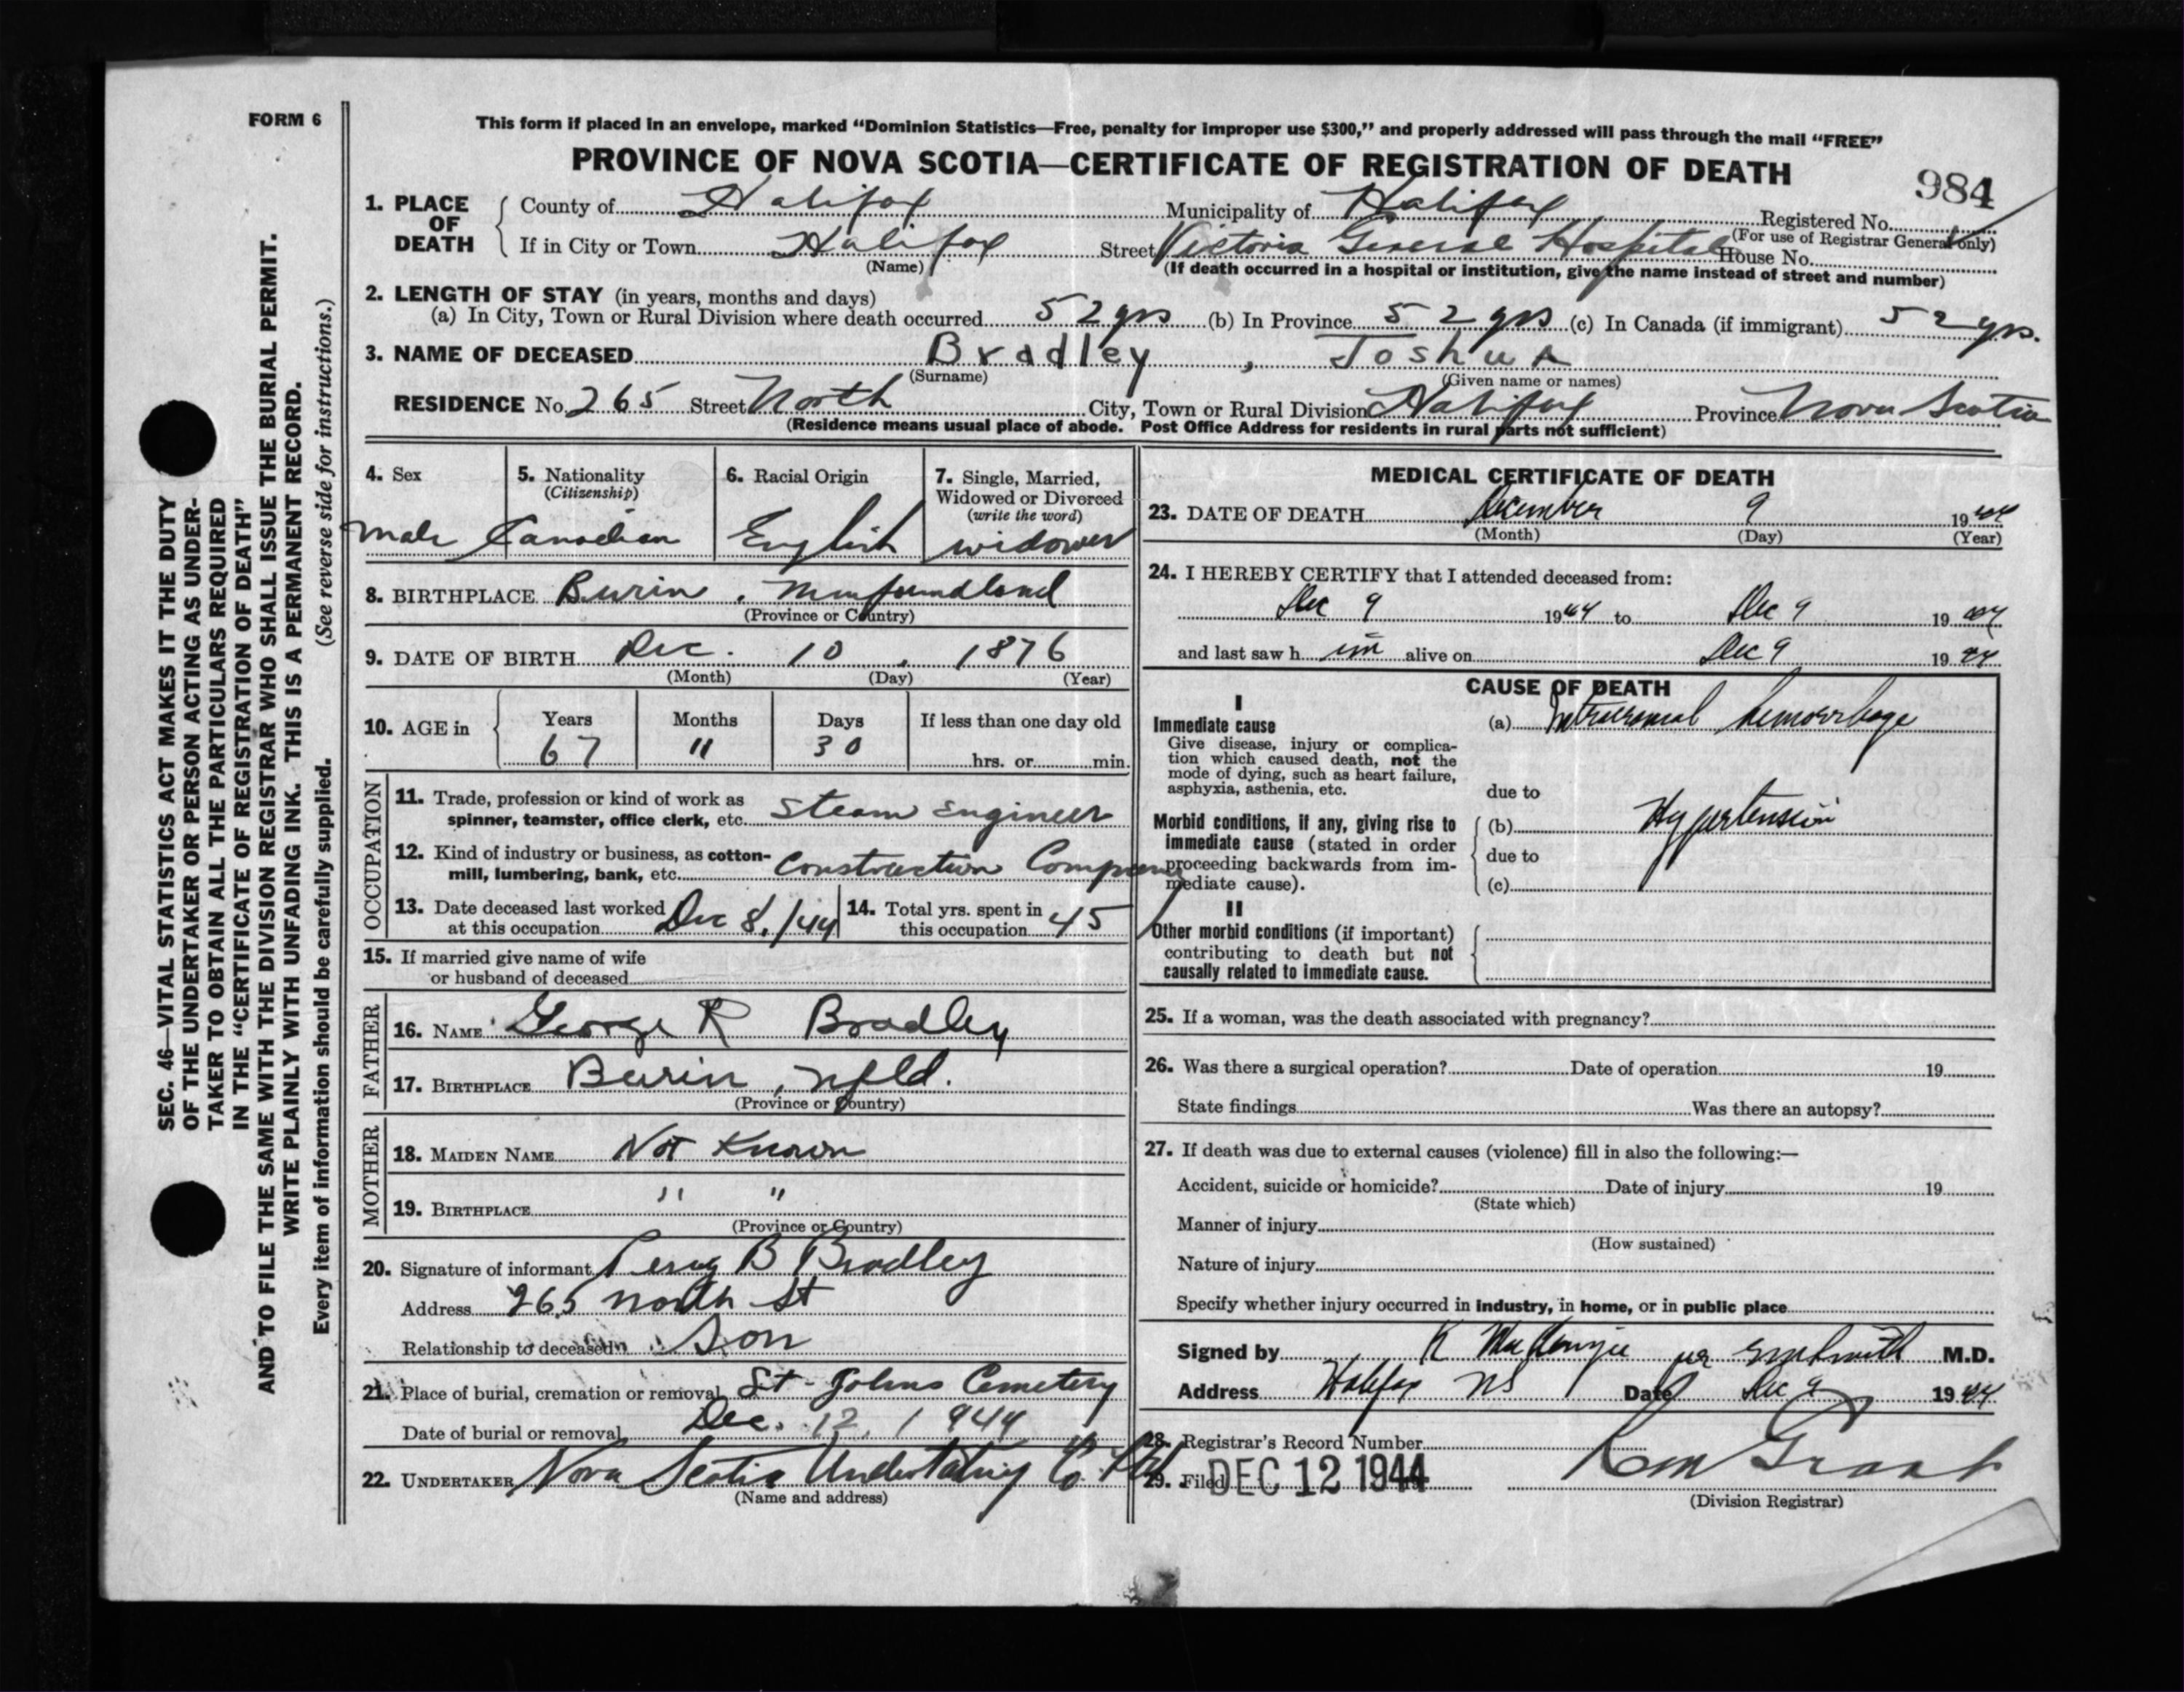 FORM 6
This form if placed in an envelope, marked “Dominion Statistics—Free, penalty for improper use $300,” and properly addressed will pass through the mail “FREE”
PROVINCE OF NOVA SCOTIA—CERTIFICATE OF REGISTRATION OF DEATH
984
1. PLACE OF DEATH
County of Halifax Municipality of Halifax Registered No.
(For use of Registrar General only)
If in City or Town Halifax Street Victoria General Hospital House No.
(Name) (If death occurred in a hospital or institution, give the name instead of street and number)
2. LENGTH OF STAY (in years, months and days)
(a) In City, Town or Rural Division where death occurred 52 yrs (b) In Province 52 yrs (c) In Canada (if immigrant) 52 yrs.
3. NAME OF DECEASED Bradley, Joshua
(Surname) (Given name or names)
RESIDENCE No. 265 Street North City, Town or Rural Division Halifax Province Nova Scotia
(Residence means usual place of abode. Post Office Address for residents in rural parts not sufficient)
4. Sex
male
5. Nationality
(Citizenship)
Canadian
6. Racial Origin
English
7. Single, Married,
Widowed or Divorced
(write the word)
widower
8. BIRTHPLACE Burin, Newfoundland
(Province or Country)
9. DATE OF BIRTH Dec. 10, 1876
(Month) (Day) (Year)
10. AGE in
Years Months Days If less than one day old
67 11 30 hrs. or min.
OCCUPATION
11. Trade, profession or kind of work as
spinner, teamster, office clerk, etc. Steam Engineer
12. Kind of industry or business, as cotton-
mill, lumbering, bank, etc. Construction Company
13. Date deceased last worked
at this occupation Dec 8./44
14. Total yrs. spent in
this occupation 45
15. If married give name of wife
or husband of deceased
FATHER
16. NAME George R Bradley
17. BIRTHPLACE Burin, Nfld.
(Province or Country)
MOTHER
18. MAIDEN NAME Not Known
19. BIRTHPLACE " "
(Province or Country)
20. Signature of informant Percy B Bradley
Address 265 North St
Relationship to deceased Son
21. Place of burial, cremation or removal St. Johns Cemetery
Date of burial or removal Dec. 12, 1944
22. UNDERTAKER Nova Scotia Undertaking Co. Ltd
(Name and address)
MEDICAL CERTIFICATE OF DEATH
23. DATE OF DEATH December 9 1944
(Month) (Day) (Year)
24. I HEREBY CERTIFY that I attended deceased from:
Dec 9 1944 to Dec 9 1944
and last saw him alive on Dec 9 1944
CAUSE OF DEATH
I
Immediate cause
Give disease, injury or complica-
tion which caused death, not the
mode of dying, such as heart failure,
asphyxia, asthenia, etc.
(a) Intracranial hemorrhage
due to
Morbid conditions, if any, giving rise to
immediate cause (stated in order
proceeding backwards from im-
mediate cause).
(b) Hypertension
due to
(c)
II
Other morbid conditions (if important)
contributing to death but not
causally related to immediate cause.
25. If a woman, was the death associated with pregnancy?
26. Was there a surgical operation? Date of operation 19
State findings Was there an autopsy?
27. If death was due to external causes (violence) fill in also the following:—
Accident, suicide or homicide? Date of injury 19
(State which)
Manner of injury
(How sustained)
Nature of injury
Specify whether injury occurred in industry, in home, or in public place
Signed by K MacKenzie per M.D.
Address Halifax NS Date Dec 9 1944
28. Registrar's Record Number
29. Filed DEC 12 1944
(Division Registrar)
SEC. 46—VITAL STATISTICS ACT MAKES IT THE DUTY
OF THE UNDERTAKER OR PERSON ACTING AS UNDER-
TAKER TO OBTAIN ALL THE PARTICULARS REQUIRED
IN THE “CERTIFICATE OF REGISTRATION OF DEATH”
AND TO FILE THE SAME WITH THE DIVISION REGISTRAR WHO SHALL ISSUE THE BURIAL PERMIT.
WRITE PLAINLY WITH UNFADING INK. THIS IS A PERMANENT RECORD.
Every item of information should be carefully supplied. (See reverse side for instructions.)